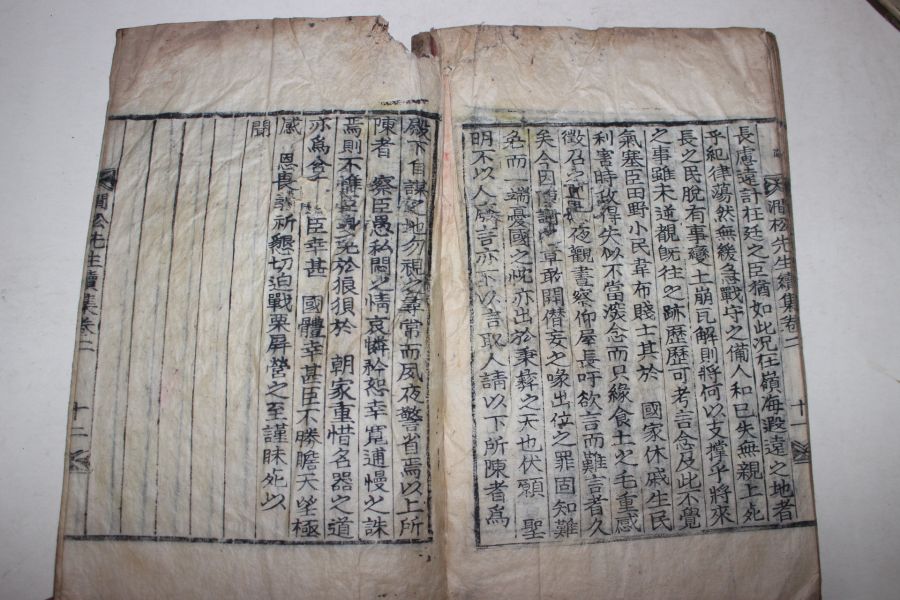 澗松先生續集卷二
十一
長慮遠計枉廷之臣猶如此況在嶺海遐遠之地者
乎紀律蕩然無緩急戰守之備人和已失無親上死
長之民脫有事變土崩瓦解則將何以支撐乎將來
之事雖未道覩旣往之跡歷歷可考言念及此不覺
氣塞臣田野小民韋布賤士其於 國家休戚生民
利害時政得失似不當深念而只緣食土之毛重感
徵召之 夜觀晝察仰屋長吁欲言而難言者久
矣今因 章敢開僭妄之喙出位之罪固知難
名而一端憂國之忱亦出於秉彝之天也伏願 聖
明不以人廢言亦不以言取人請以下所陳者爲
殿下自謀之地勿視之尋常而夙夜警省焉以上所
陳者 察臣愚私悶之情哀憐矜恕幸寬逋慢之誅
焉則不惟臣身免於狼狽於 朝家重惜名器之道
亦爲 臣幸甚 國體幸甚臣不勝瞻天望極
感 恩畏 祈懇切迫戰栗屛營之至謹昧死以
聞
澗松先生續集卷二
十二